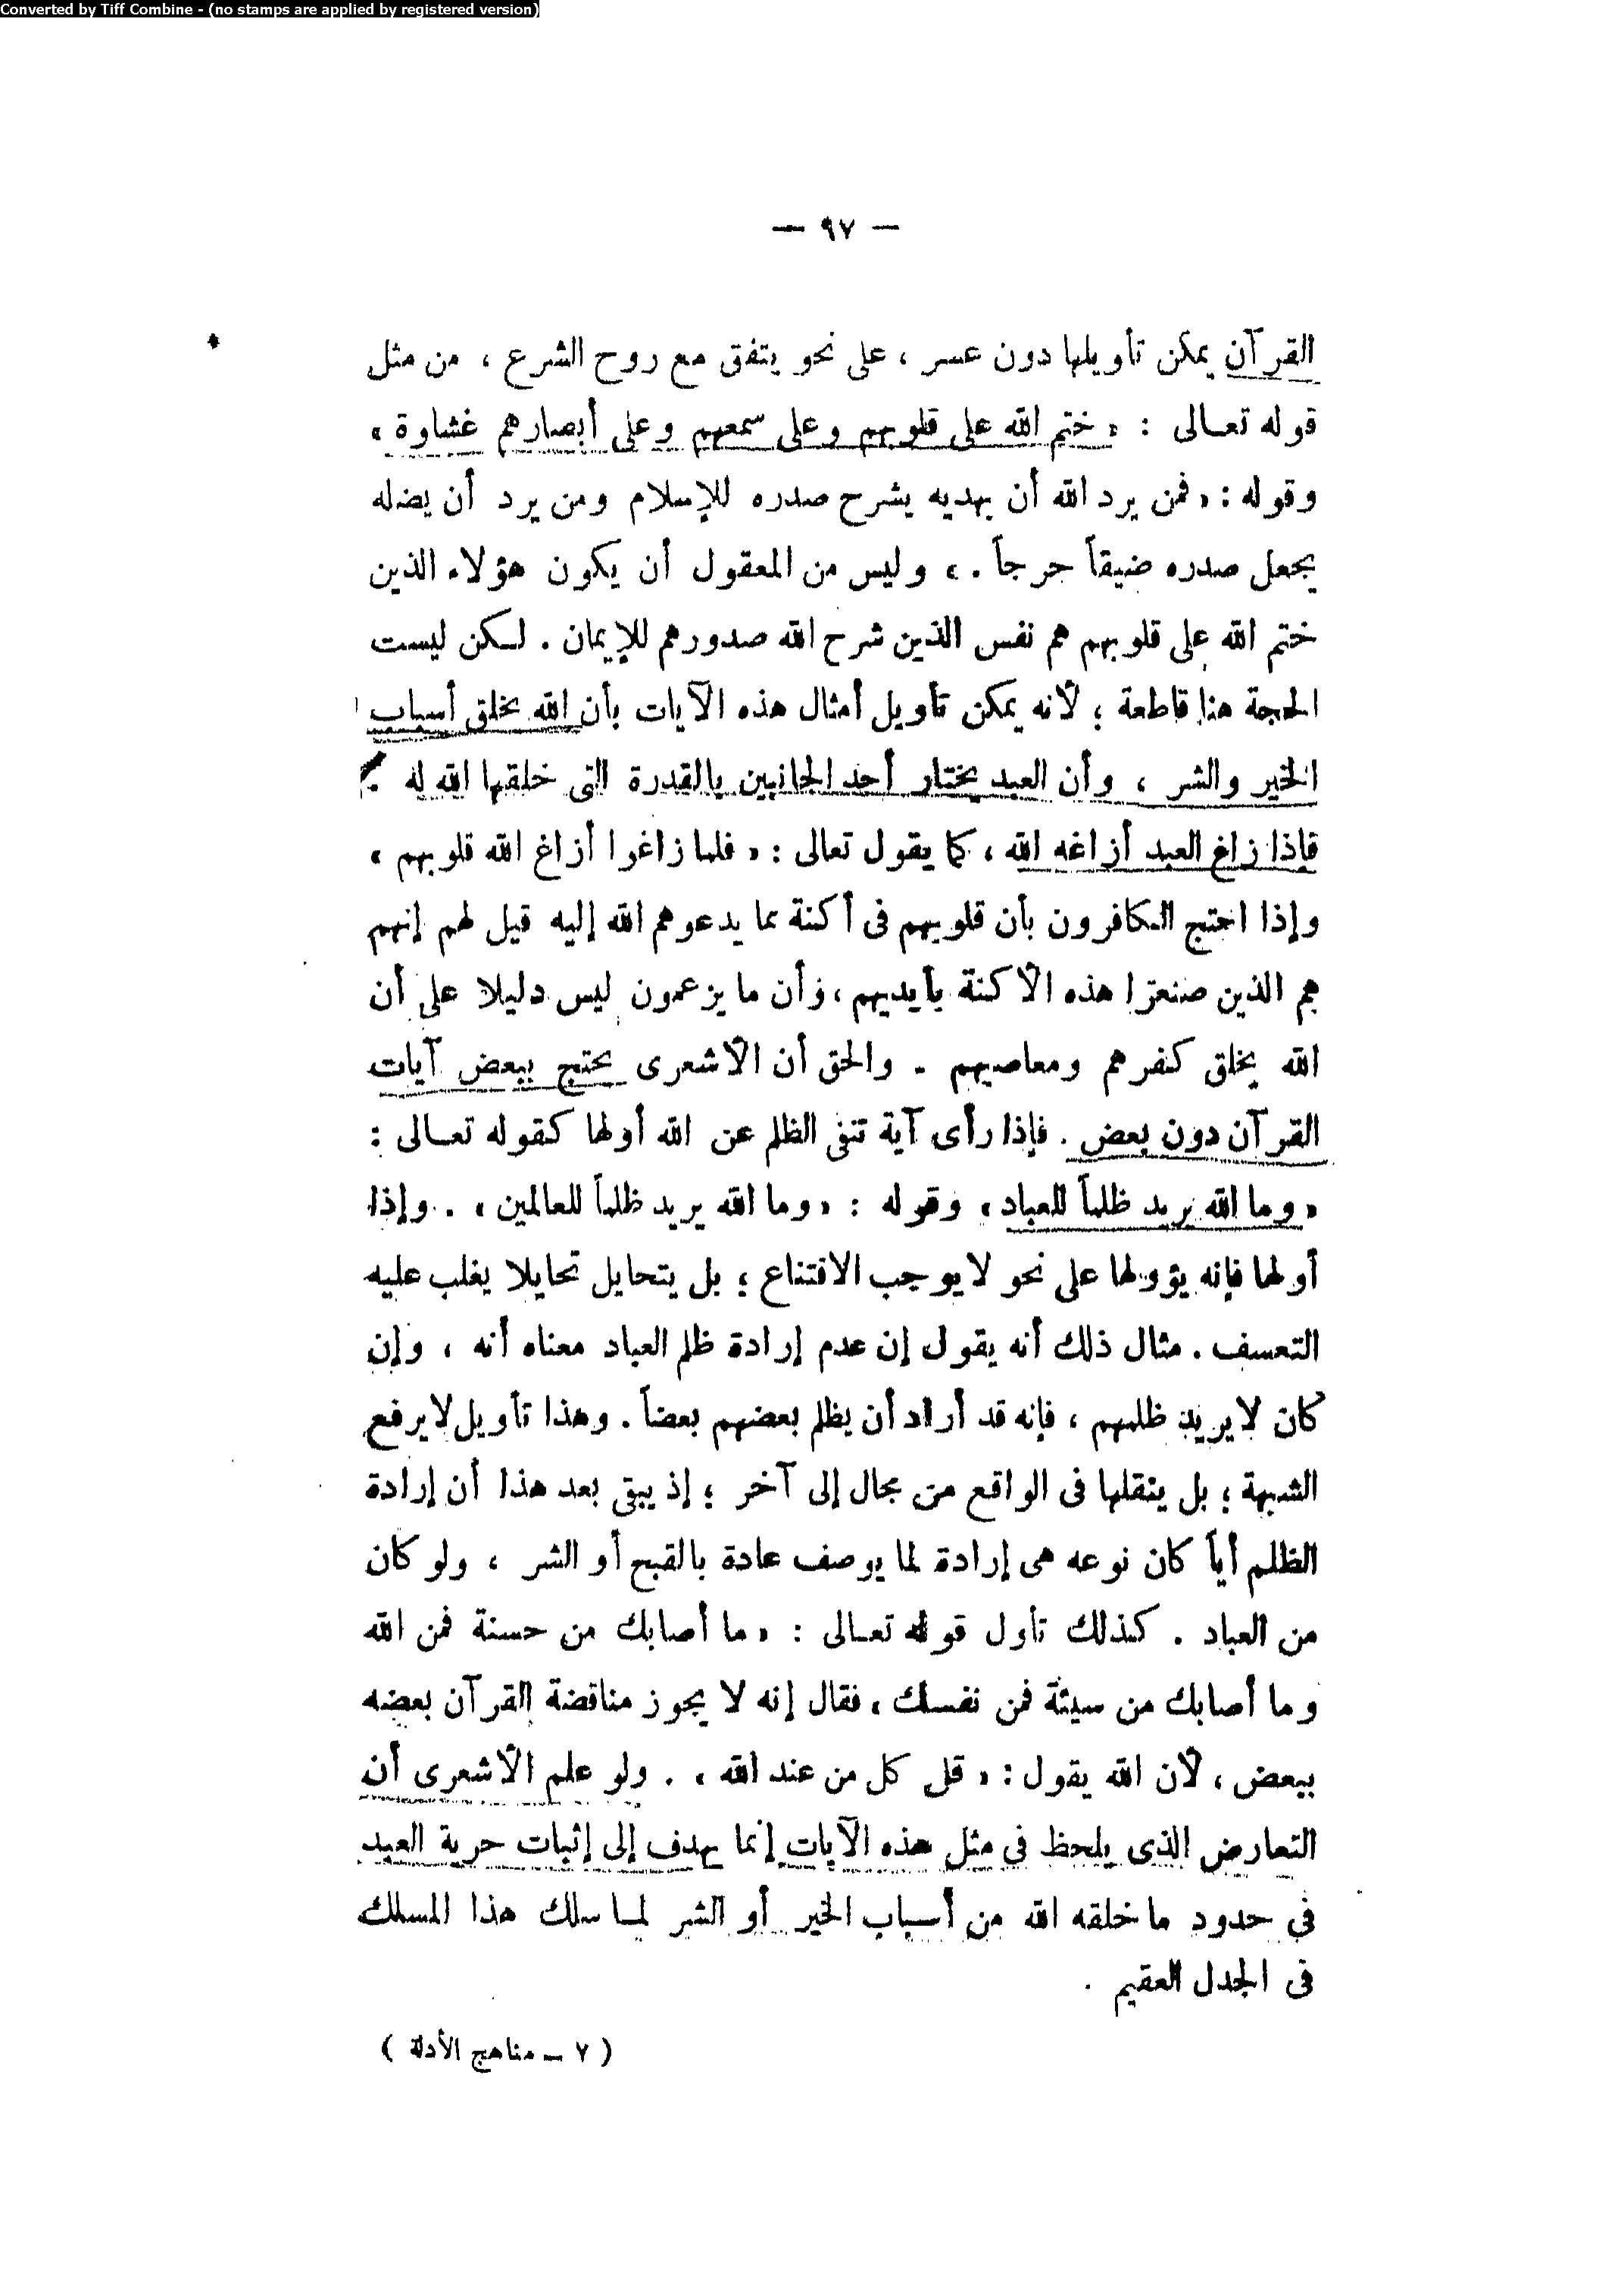 Converted by Tiff Combine - (no stamps are applied by registered version)
— ٩٧ —
القرآن يمكن تأويلها دون عسر ، على نحو يتفق مع روح الشرع ، من مثل
قوله تعـالى : « ختم الله على قلوبهم وعلى سمعهم وعلى أبصارهم غشاوة »
وقوله : « فمن يرد الله أن يهديه يشرح صدره للإسلام ومن يرد أن يضله
يجعل صدره ضيقاً حرجاً . » وليس من المعقول أن يكون هؤلاء الذين
ختم الله على قلوبهم هم نفس الذين شرح الله صدورهم للإيمان . لـكن ليست
الحجة هنا قاطعة ؛ لأنه يمكن تأويل أمثال هذه الآيات بأن الله يخلق أسباب
الخير والشر ، وأن العبد يختار أحد الجانبين بالقدرة التى خلقها الله له .
فإذا زاغ العبد أزاغه الله ، كما يقول تعالى : « فلما زاغوا أزاغ الله قلوبهم »
وإذا احتج الـكافرون بأن قلوبهم فى أكنة مما يدعوهم الله إليه قيل لهم إنهم
هم الذين صنعوا هذه الأكنة بأيديهم ، وأن ما يزعمون ليس دليلا على أن
الله يخلق كفرهم ومعاصيهم . والحق أن الأشعرى يحتج ببعض آيات
القرآن دون بعض . فإذا رأى آية تنفى الظلم عن الله أولها كقوله تعـالى :
« وما الله يريد ظلماً للعباد » وقوله : « وما الله يريد ظلماً للعالمين » . وإذا
أولها فإنه يؤولها على نحو لا يوجب الاقتناع ؛ بل يتحايل تحايلا يغلب عليه
التعسف . مثال ذلك أنه يقول إن عدم إرادة ظلم العباد معناه أنه ، وإن
كان لا يريد ظلمهم ، فإنه قد أراد أن يظلم بعضهم بعضاً . وهذا تأويل لا يرفع
الشبهة ؛ بل ينقلها فى الواقع من مجال إلى آخر ؛ إذ يبقى بعد هذا أن إرادة
الظلم أياً كان نوعه هى إرادة لما يوصف عادة بالقبح أو الشر ، ولو كان
من العباد . كذلك تأول قوله تعـالى : « ما أصابك من حسنة فمن الله
وما أصابك من سيئة فمن نفسك » فقال إنه لا يجوز مناقضة القرآن بعضه
ببعض ، لأن الله يقول : « قل كل من عند الله » . ولو علم الأشعرى أن
التعارض الذى يلحظ فى مثل هذه الآيات إنما يهدف إلى إثبات حرية العبد
فى حدود ما خلقه الله من أسباب الخير أو الشر لمـا سلك هذا المسلك
فى الجدل العقيم .
( ٧ — مناهج الأدلة )